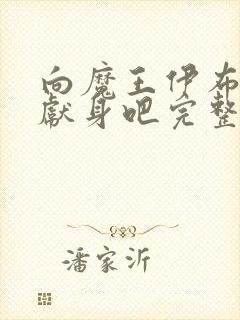 向魔王伊布
獻身吧完整
潘家沂